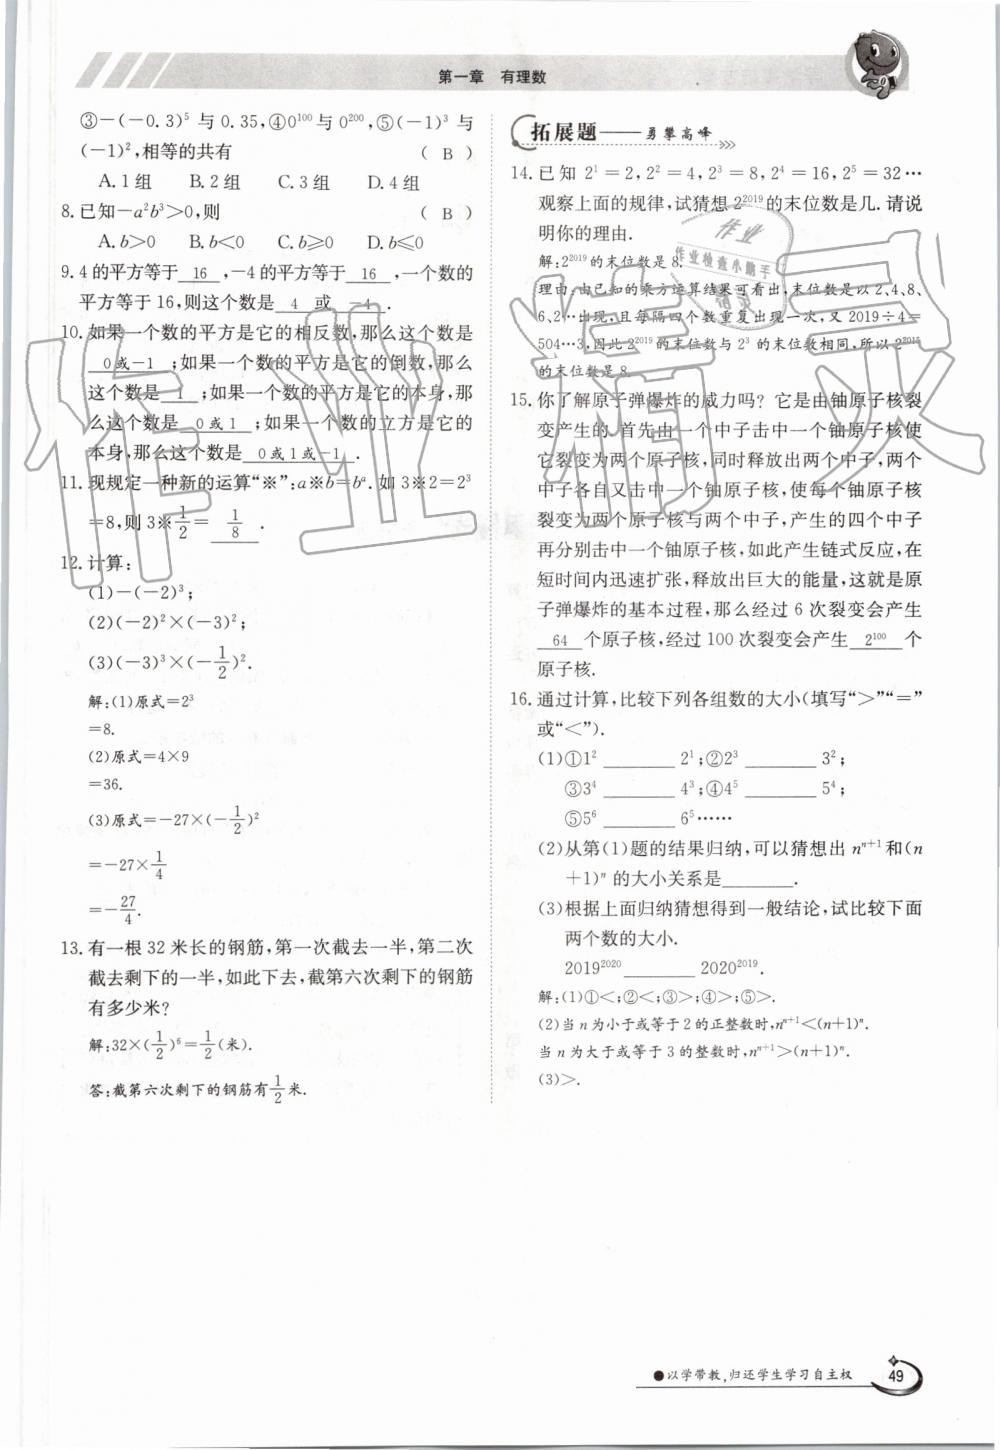 第一章 有理数
③-(-0.3)⁵ 与 0.35,④0¹⁰⁰ 与 0²⁰⁰,⑤(-1)³ 与
(-1)²,相等的共有 ( B )
A.1 组 B.2 组 C.3 组 D.4 组
8.已知-a²b³>0,则 ( B )
A.b>0 B.b<0 C.b≥0 D.b≤0
9.4 的平方等于 16 ,-4 的平方等于 16 ,一个数的
平方等于 16,则这个数是 4 或 -4 .
10.如果一个数的平方是它的相反数,那么这个数是
0 或-1 ;如果一个数的平方是它的倒数,那么
这个数是 1 ;如果一个数的平方是它的本身,那
么这个数是 0 或 1 ;如果一个数的立方是它的
本身,那么这个数是 0 或 1 或-1 .
11.现规定一种新的运算“※”:a※b=bᵃ.如 3※2=2³
=8,则 3※1/2= 1/8 .
12.计算:
(1)-(-2)³;
(2)(-2)²×(-3)²;
(3)(-3)³×(-1/2)².
解:(1)原式=2³
=8.
(2)原式=4×9
=36.
(3)原式=-27×(-1/2)²
=-27×1/4
=-27/4.
13.有一根 32 米长的钢筋,第一次截去一半,第二次
截去剩下的一半,如此下去,截第六次剩下的钢筋
有多少米?
解:32×(1/2)⁶=1/2(米).
答:截第六次剩下的钢筋有1/2米.
拓展题——勇攀高峰
14.已知 2¹=2,2²=4,2³=8,2⁴=16,2⁵=32…
观察上面的规律,试猜想 2²⁰¹⁹ 的末位数是几.请说
明你的理由.
解:2²⁰¹⁹ 的末位数是 8.
理由:由已知的乘方运算结果可看出,末位数是以 2、4、8、
6、2…出现,且每隔四个数重复出现一次,又 2019÷4=
504…3,因此 2²⁰¹⁹ 的末位数与 2³ 的末位数相同,所以 2²⁰¹⁹
的末位数是 8.
15.你了解原子弹爆炸的威力吗? 它是由铀原子核裂
变产生的.首先由一个中子击中一个铀原子核使
它裂变为两个原子核,同时释放出两个中子,两个
中子各自又击中一个铀原子核,使每个铀原子核
裂变为两个原子核与两个中子,产生的四个中子
再分别击中一个铀原子核,如此产生链式反应,在
短时间内迅速扩张,释放出巨大的能量,这就是原
子弹爆炸的基本过程,那么经过 6 次裂变会产生
64 个原子核,经过 100 次裂变会产生 2¹⁰⁰ 个
原子核.
16.通过计算,比较下列各组数的大小(填写“>”“=”
或“<”).
(1)①1² ______ 2¹;②2³ ______ 3²;
③3⁴ ______ 4³;④4⁵ ______ 5⁴;
⑤5⁶ ______ 6⁵……
(2)从第(1)题的结果归纳,可以猜想出 nⁿ⁺¹ 和(n
+1)ⁿ 的大小关系是______.
(3)根据上面归纳猜想得到一般结论,试比较下面
两个数的大小.
2019²⁰²⁰ ______ 2020²⁰¹⁹.
解:(1)①<;②<;③>;④>;⑤>.
(2)当 n 为小于或等于 2 的正整数时,nⁿ⁺¹<(n+1)ⁿ.
当 n 为大于或等于 3 的整数时,nⁿ⁺¹>(n+1)ⁿ.
(3)>.
作业
作业检查小助手
精灵
作业精灵
●以学带教,归还学生学习自主权
49